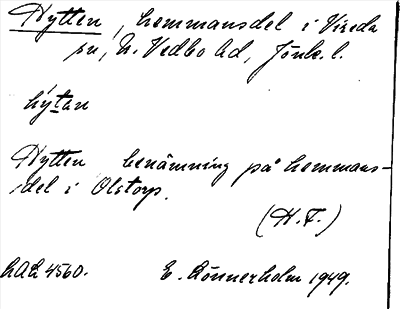 Hytten, hemmansdel i Vireda
sn, N. Vedbo hd, Jönk. l.
hýtan
Hytten benämning på hemmans-
del i Olstorp.
(H.F.)
LAL 4560. E. Rönnerholm 1949.